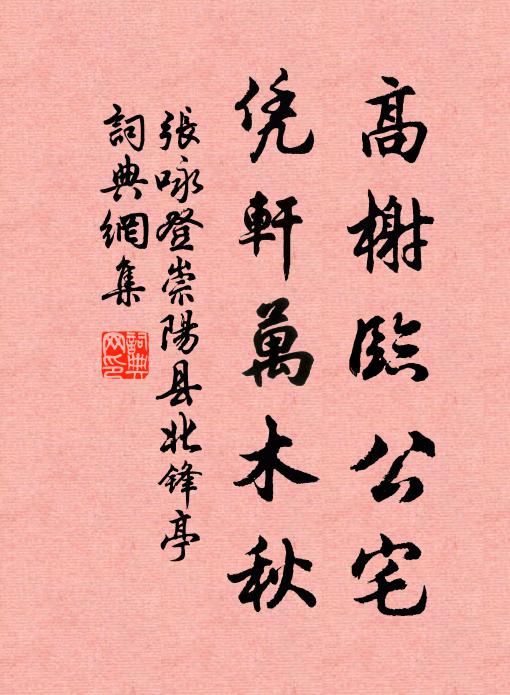 高榭臨公宅
凭軒萬木秋
張咏登崇陽县北锋亭
詞典網集
詞典网印